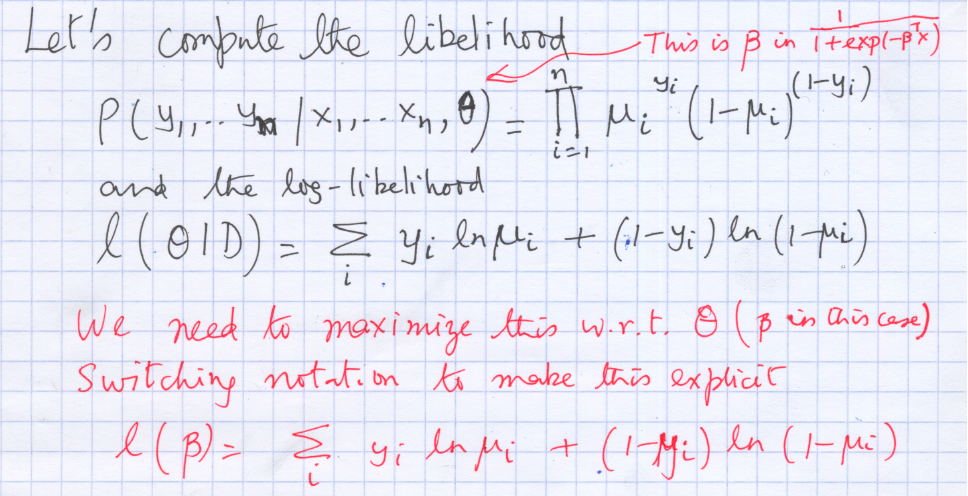 Let's compute the likelihood
This is β in 1/(1+exp(-βᵀx))
P(y₁,... yₙ | x₁,... xₙ, θ) = ∏ᵢ₌₁ⁿ μᵢ^yᵢ (1-μᵢ)^(1-yᵢ)
and the log-likelihood
l(θ|D) = Σᵢ yᵢ ln μᵢ + (1-yᵢ) ln (1-μᵢ)
We need to maximize this w.r.t. θ (β in this case)
Switching notation to make this explicit
l(β) = Σᵢ yᵢ ln μᵢ + (1-yᵢ) ln (1-μᵢ)